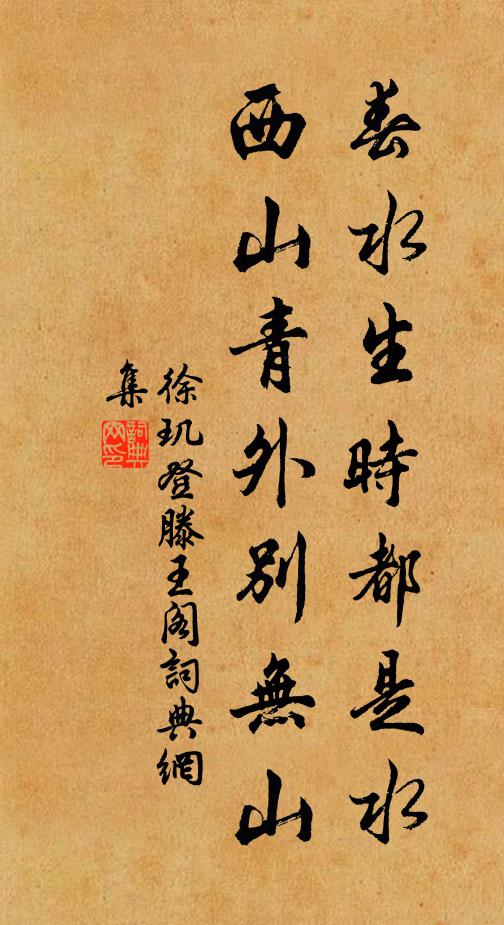 春水生時都是水
西山青外別無山
徐玑登滕王阁詞典網
集
詞典
网印